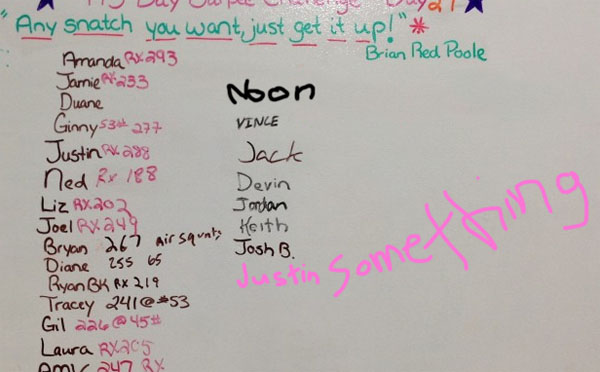 115 Day Burpee Challenge Day 27
"Any snatch you want, just get it up!" *
Brian Red Poole
Amanda RX 293
Jamie RX 233
Duane
Ginny 53# 277
Justin RX 288
Ned Rx 188
Liz RX 202
Joel RX 249
Bryan 267 Air squats
Diane 255 65
RyanBK RX 219
Tracey 241@#53
Gil 226@45#
Laura RX205
Amy 247 RX
Noon
VINCE
Jack
Devin
Jordan
Keith
Josh B.
Justin something